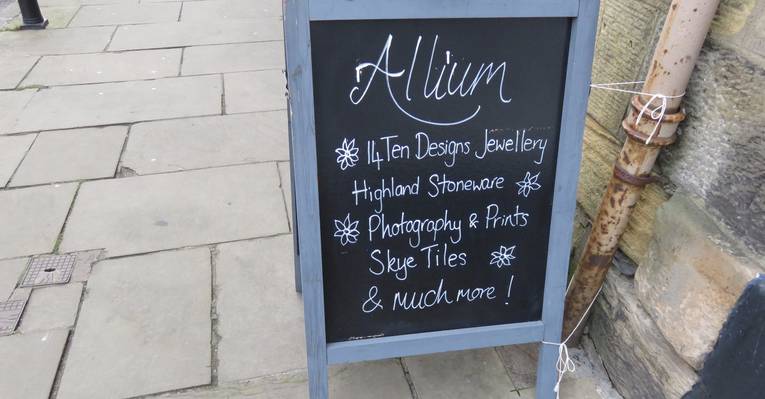 Allium
14Ten Designs Jewellery
Highland Stoneware
Photography & Prints
Skye Tiles
& much more !